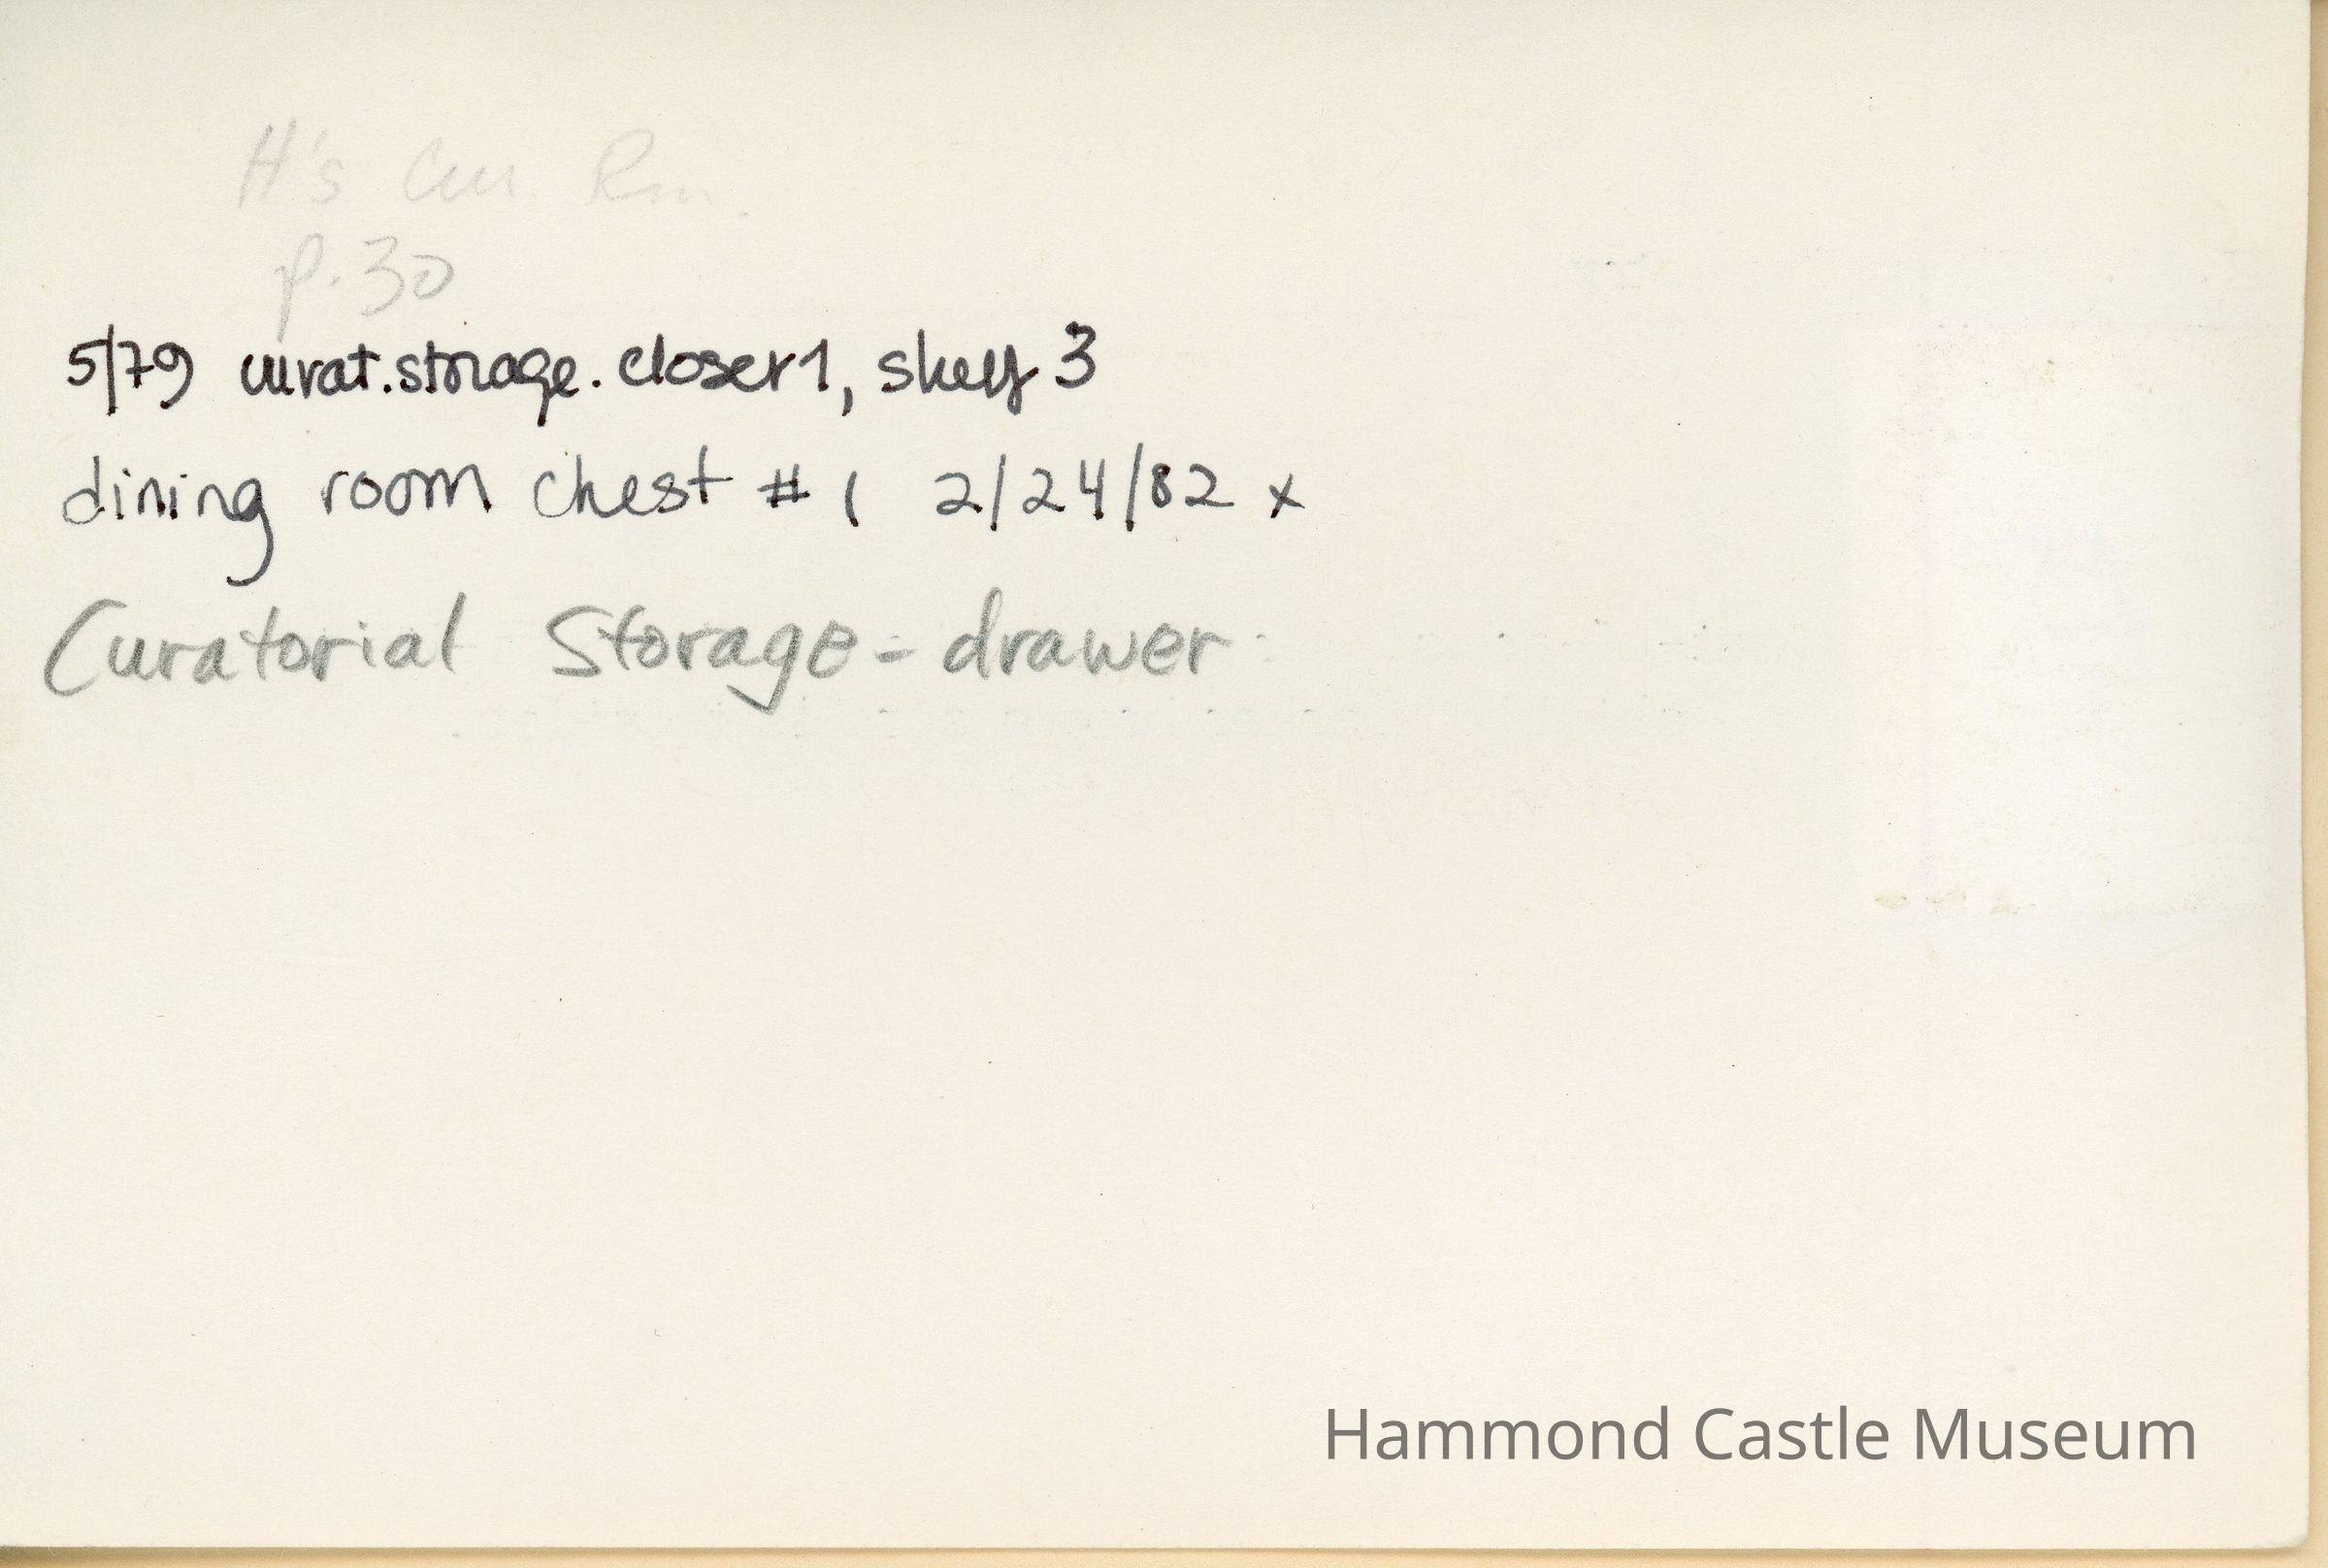 H's Cur. Rm.
p. 30
5/79 curat. storage. closet 1, shelf 3
dining room chest # 1 2/24/82 x
Curatorial Storage - drawer
Hammond Castle Museum